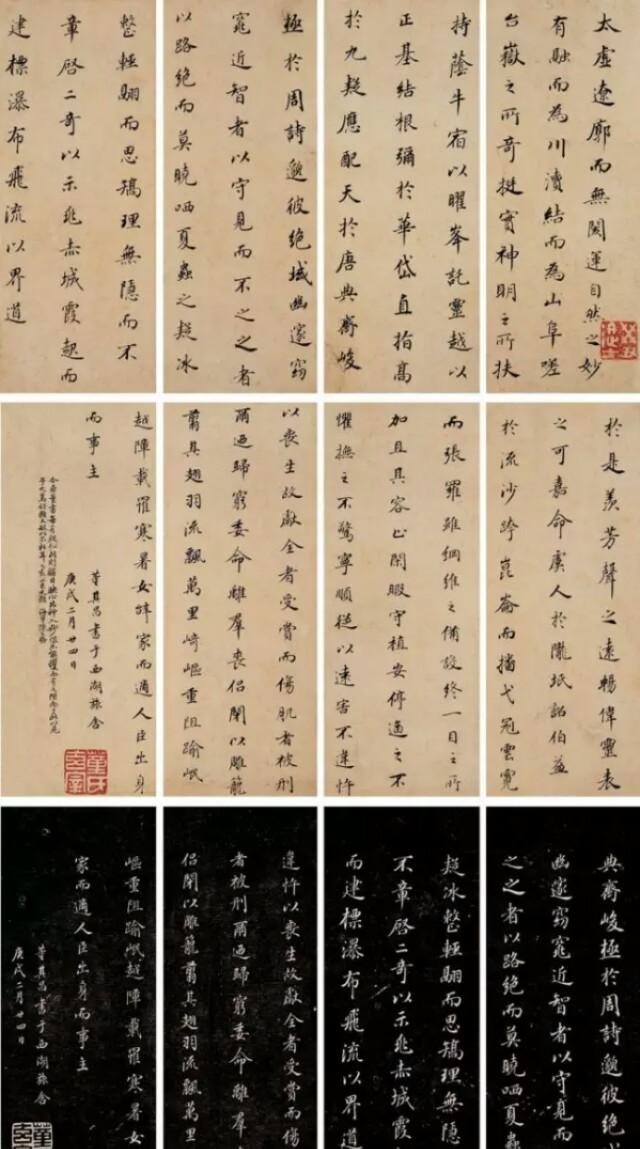 太虛遼廓而無閡運自然之妙
有融而為川瀆結而為山阜嗟
台嶽之所奇挺實神明之所扶
持蔭牛宿以曜峯託靈越以
正基結根彌於華岱直指高
於九疑應配天於唐典齊峻
極於周詩邈彼絕域幽邃窈
窕近智者以守見而不之之者
以路絕而莫曉哂夏蟲之疑冰
整輕翮而思矯理無隱而不
章啓二奇以示兆赤城霞起而
建標瀑布飛流以界道
於是羨芳聲之遠暢偉靈表
之可嘉命虞人於隴坻詔伯益
於流沙跨崑崙而播弋冠雲霓
而張羅雖綱維之備設終一目之所
加且其容止閑暇守植安停逼之不
懼撫之不驚寧順從以遠害不違忤
以喪生故獻全者受賞而傷肌者被刑
爾迺歸窮委命離羣喪侶閉以雕籠
翦其翅羽流飄萬里崎嶇重阻踰岷
越障載罹寒暑女辭家而適人臣出身
而事主
董其昌書于西湖旅舍
庚戌二月廿四日
董氏玄宰
典齊峻極於周詩邈彼絕
幽邃窈窕近智者以守見而
之之者以路絕而莫曉哂夏蟲
疑冰整輕翮而思矯理無隱
不章啓二奇以示兆赤城霞
而建標瀑布飛流以界道
違忤以喪生故獻全者受賞而傷
者被刑爾迺歸窮委命離羣
侶閉以雕籠翦其翅羽流飄萬里
嶇重阻踰岷越障載罹寒暑女
家而適人臣出身而事主
董其昌書于西湖旅舍
庚戌二月廿四日